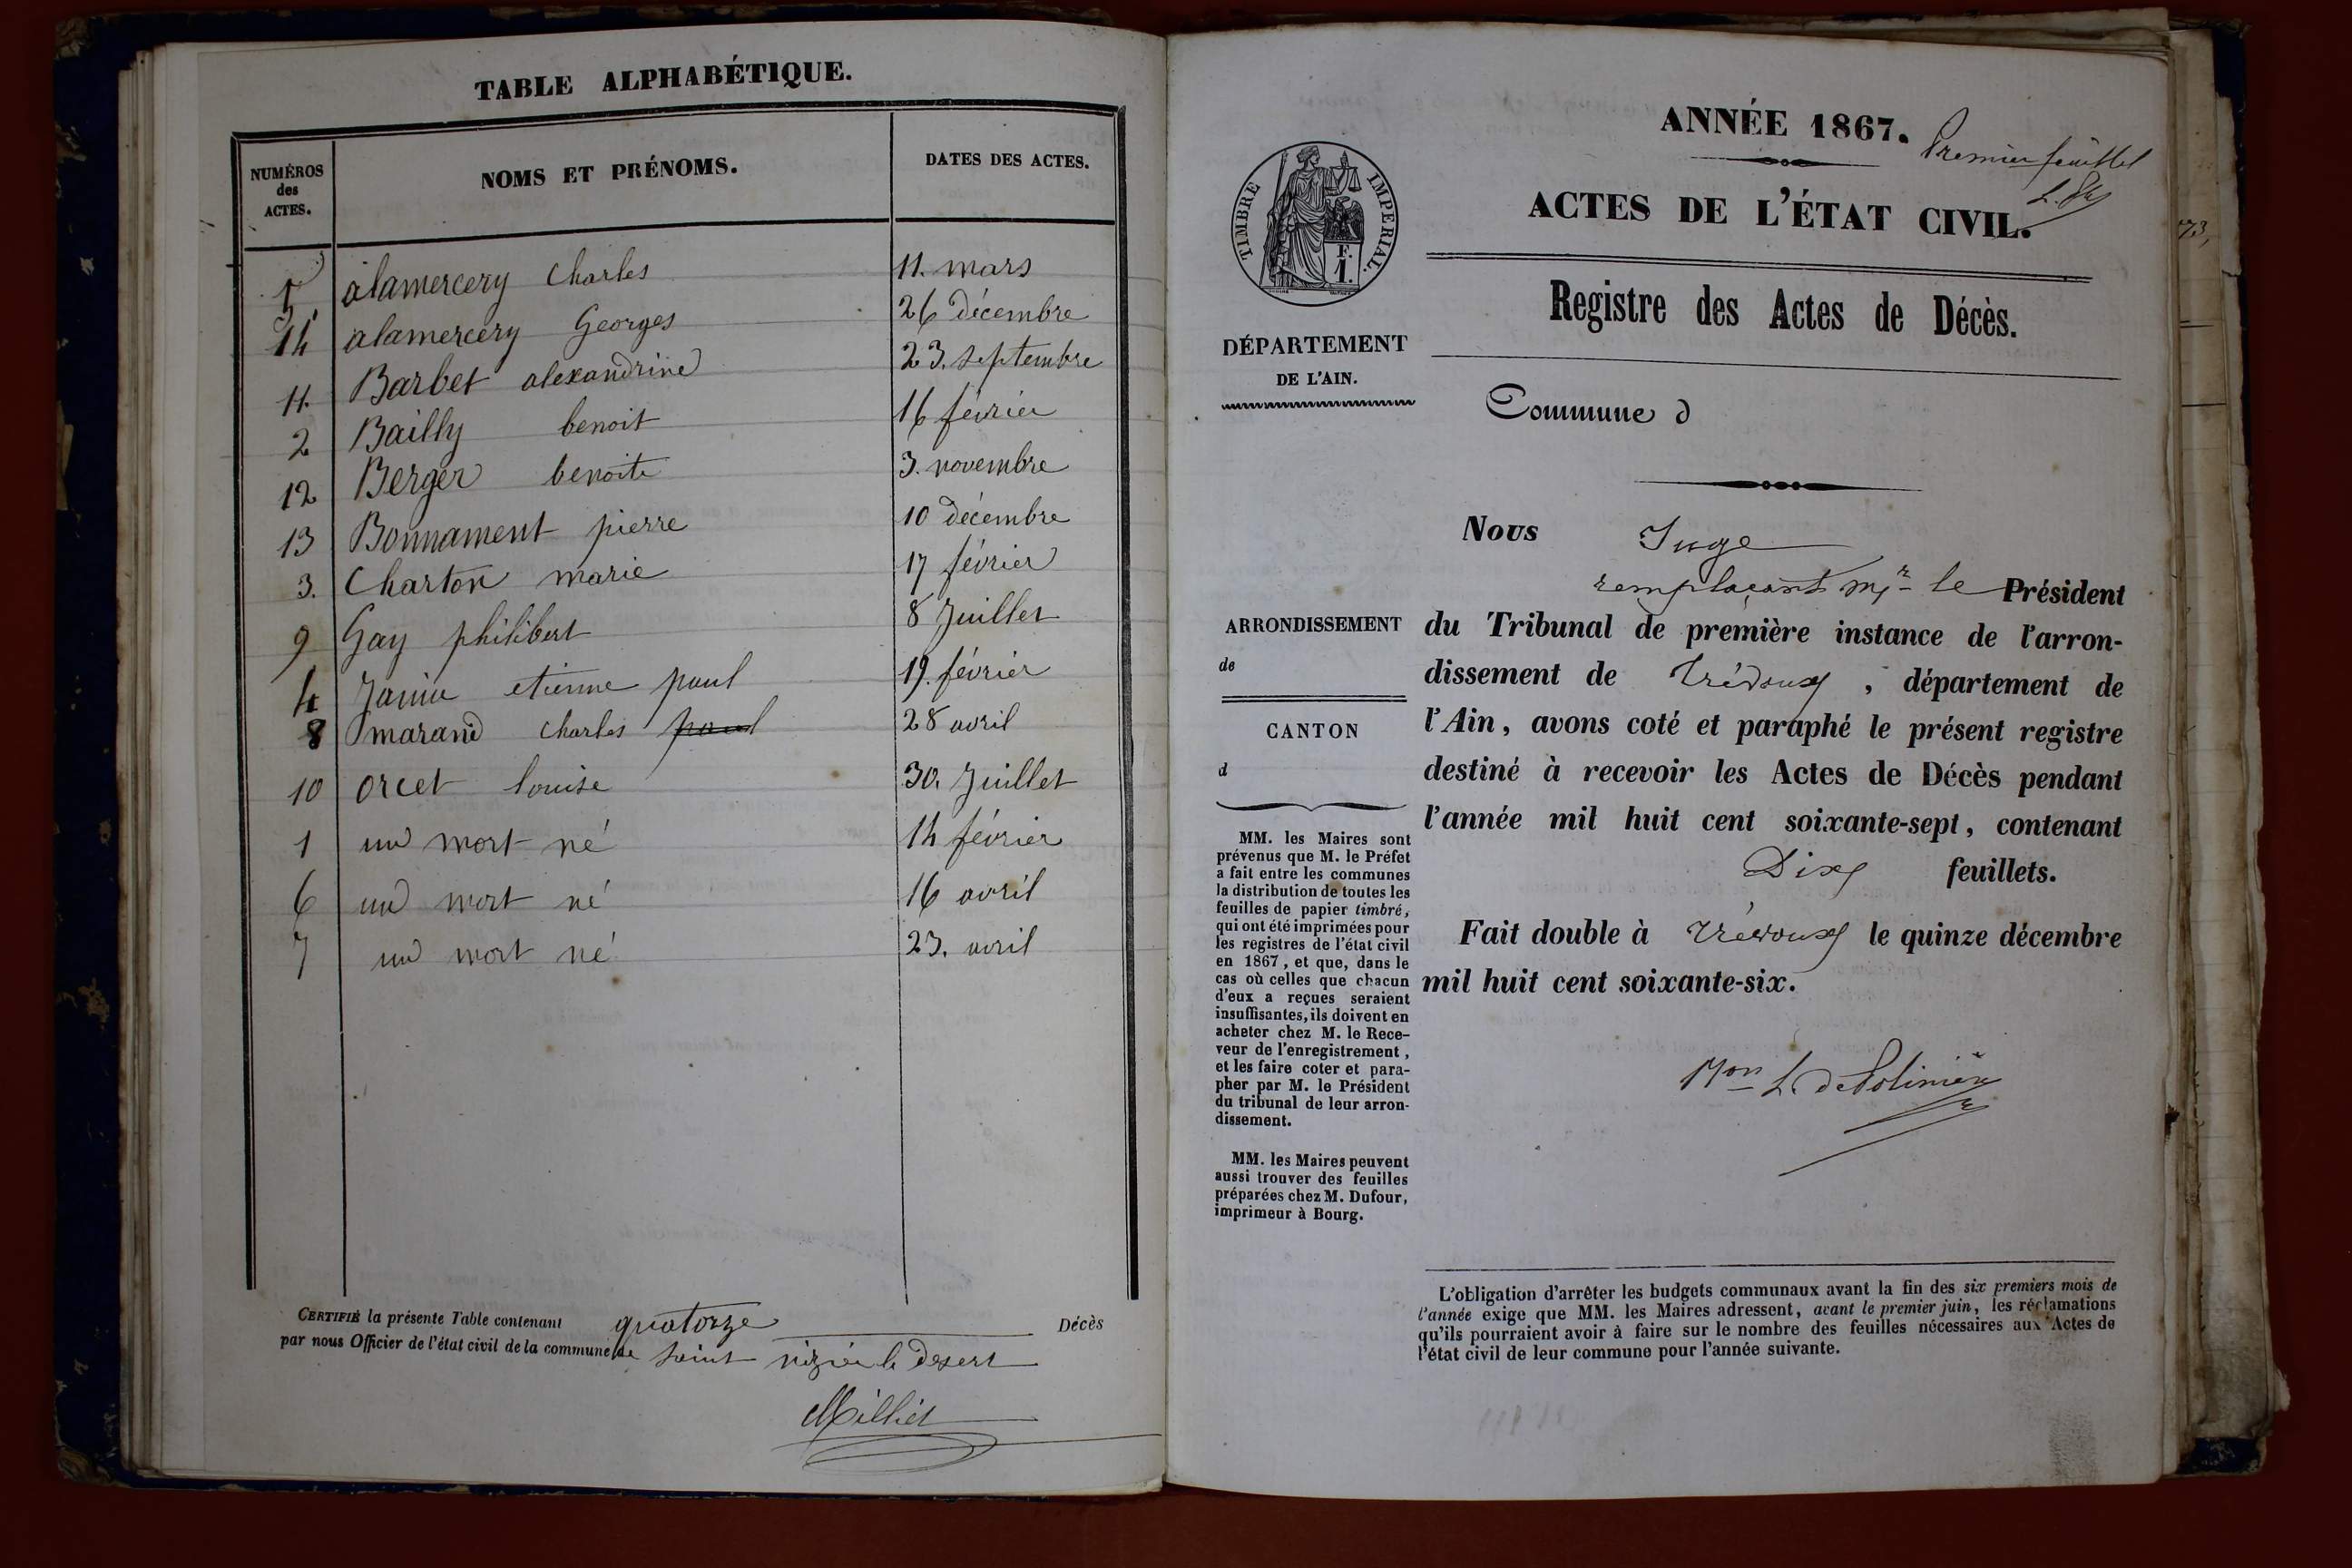 TABLE ALPHABÉTIQUE.
NUMÉROS des ACTES. NOMS ET PRÉNOMS. DATES DES ACTES.
5. alamercery Charles 11. mars
14 alamercery Georges 26 décembre
11. Barbet alexandrine 23. septembre
2 Bailly benoit 16 février
12 Berger benoite 3. novembre
13 Bonnament pierre 10 décembre
3. Charton marie 17 février
9 Gay philibert 8 Juillet
4 etienne paul 19. février
8 marand Charles paul 28 avril
10 orcet louise 30. Juillet
1 un mort né 14 février
6 un mort né 16 avril
7 un mort né 23. avril
CERTIFIÉ la présente Table contenant quatorze Décès
par nous Officier de l'état civil de la commune de Saint nizier le desert
Milliet
ANNÉE 1867.
Premier feuillet
ACTES DE L'ÉTAT CIVIL.
TIMBRE IMPERIAL.
F.
1.
Registre des Actes de Décès.
DÉPARTEMENT
DE L'AIN.
Commune d
Nous Juge
remplaçant Mr le Président
ARRONDISSEMENT
de
CANTON
d
du Tribunal de première instance de l'arron-
dissement de Trévoux, département de
l'Ain, avons coté et paraphé le présent registre
destiné à recevoir les Actes de Décès pendant
l'année mil huit cent soixante-sept, contenant
Dix feuillets.
Fait double à Trévoux le quinze décembre
mil huit cent soixante-six.
MM. les Maires sont
prévenus que M. le Préfet
a fait entre les communes
la distribution de toutes les
feuilles de papier timbré,
qui ont été imprimées pour
les registres de l'état civil
en 1867, et que, dans le
cas où celles que chacun
d'eux a reçues seraient
insuffisantes, ils doivent en
acheter chez M. le Rece-
veur de l'enregistrement,
et les faire coter et para-
pher par M. le Président
du tribunal de leur arron-
dissement.
MM. les Maires peuvent
aussi trouver des feuilles
préparées chez M. Dufour,
imprimeur à Bourg.
L'obligation d'arrêter les budgets communaux avant la fin des six premiers mois de
l'année exige que MM. les Maires adressent, avant le premier juin, les réclamations
qu'ils pourraient avoir à faire sur le nombre des feuilles nécessaires aux Actes de
l'état civil de leur commune pour l'année suivante.